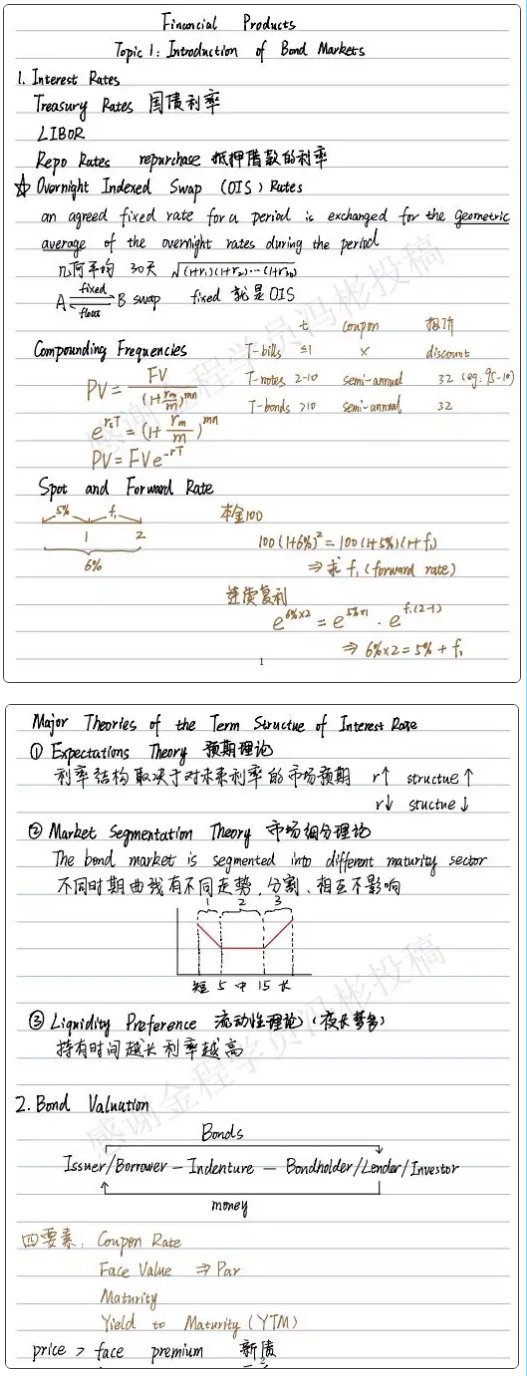 Financial Products
Topic 1: Introduction of Bond Markets
1. Interest Rates
Treasury Rates 国债利率
LIBOR
Repo Rates repurchase 抵押借款的利率
☆ Overnight Indexed Swap (OIS) Rates
an agreed fixed rate for a period is exchanged for the geometric
average of the overnight rates during the period
几何平均 30天 √(1+r₁)(1+r₂)…(1+r₃₀)
A fixed float B swap fixed 就是OIS
Compounding Frequencies
t coupon 报价
T-bills ≤1 × discount
T-notes 2-10 semi-annual 32 (eg: 95-10)
T-bonds >10 semi-annual 32
PV = FV/(1+rₘ/m)^mn
e^(r_cT) = (1+rₘ/m)^mn
PV = FVe^-rT
Spot and Forward Rate
5% f₁
1 2
6%
本金100
100(1+6%)² = 100(1+5%)(1+f₁)
⇒ 求 f₁ (forward rate)
连续复利
e^(6%×2) = e^(5%×1) · e^(f₁(2-1))
⇒ 6%×2 = 5% + f₁
1
感谢金程学员冯彬投稿
Major Theories of the Term Structue of Interest Rate
① Expectations Theory 预期理论
利率结构取决于对未来利率的市场预期 r↑ structue↑
r↓ stuctue↓
② Market Segmentation Theory 市场细分理论
The bond market is segmented into different maturity sector
不同时期曲线有不同走势,分割、相互不影响
1 2 3
短 5 中 15 长
③ Liquidity Preference 流动性理论 (夜长梦多)
持有时间越长利率越高
2. Bond Valuation
Bonds
Issuer/Borrower — Indenture — Bondholder/Lender/Investor
money
四要素: Coupon Rate
Face Value ⇒ Par
Maturity
Yield to Maturity (YTM)
price > face premium 新债
2
感谢金程学员冯彬投稿